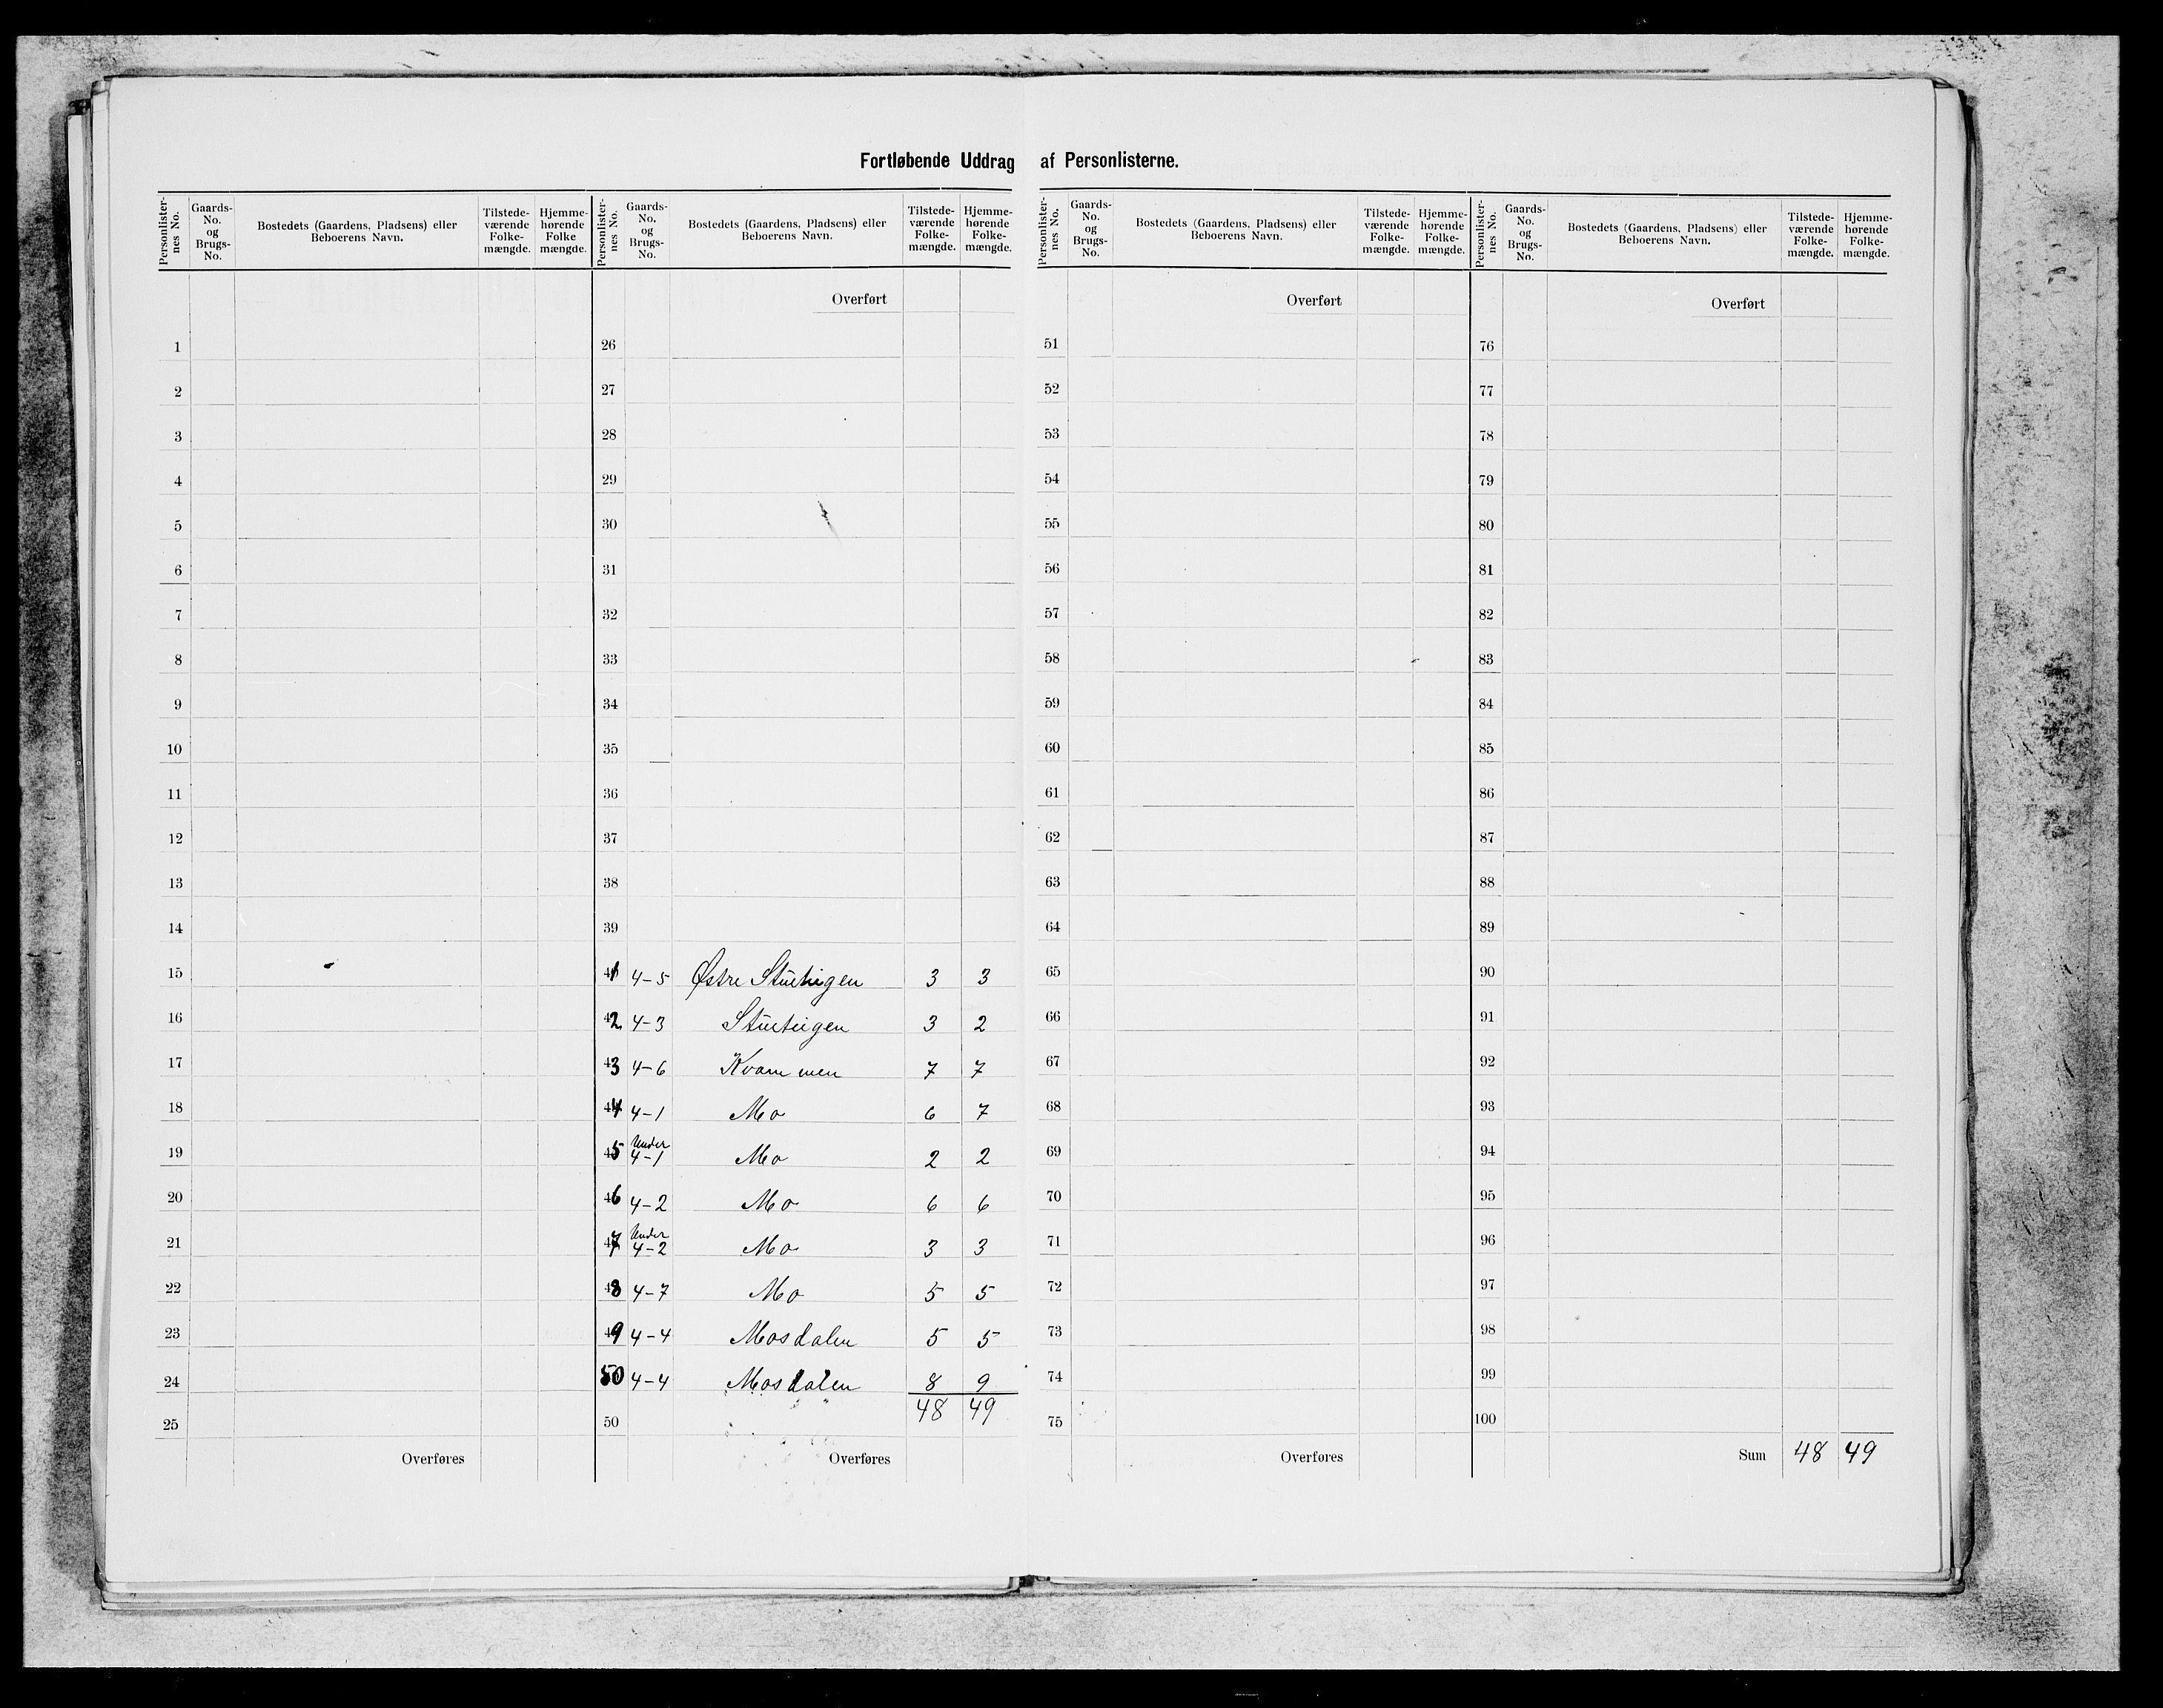 Fortløbende Uddrag af Personlisterne.
Personlisternes No. Gaards-No. og Brugs-No. Bostedets (Gaardens, Pladsens) eller Beboerens Navn. Tilstedeværende Folkemængde. Hjemmehørende Folkemængde.
Personlisternes No. Gaards-No. og Brugs-No. Bostedets (Gaardens, Pladsens) eller Beboerens Navn. Tilstedeværende Folkemængde. Hjemmehørende Folkemængde.
Personlisternes No. Gaards-No. og Brugs-No. Bostedets (Gaardens, Pladsens) eller Beboerens Navn. Tilstedeværende Folkemængde. Hjemmehørende Folkemængde.
Personlisternes No. Gaards-No. og Brugs-No. Bostedets (Gaardens, Pladsens) eller Beboerens Navn. Tilstedeværende Folkemængde. Hjemmehørende Folkemængde.
Overført Overført Overført
1 26 51 76
2 27 52 77
3 28 53 78
4 29 54 79
5 30 55 80
6 31 56 81
7 32 57 82
8 33 58 83
9 34 59 84
10 35 60 85
11 36 61 86
12 37 62 87
13 38 63 88
14 39 64 89
15 41 4-5 Østre 3 3 65 90
16 42 4-3 3 2 66 91
17 43 4-6 Kvammen 7 7 67 92
18 44 4-1 Mo 6 7 68 93
19 45 Under 4-1 Mo 2 2 69 94
20 46 4-2 Mo 6 6 70 95
21 47 Under 4-2 Mo 3 3 71 96
22 48 4-7 Mo 5 5 72 97
23 49 4-4 Mosdalen 5 5 73 98
24 50 4-4 Mosdalen 8 9 74 99
25 50 48 49 75 100
Overføres Overføres Overføres Sum 48 49